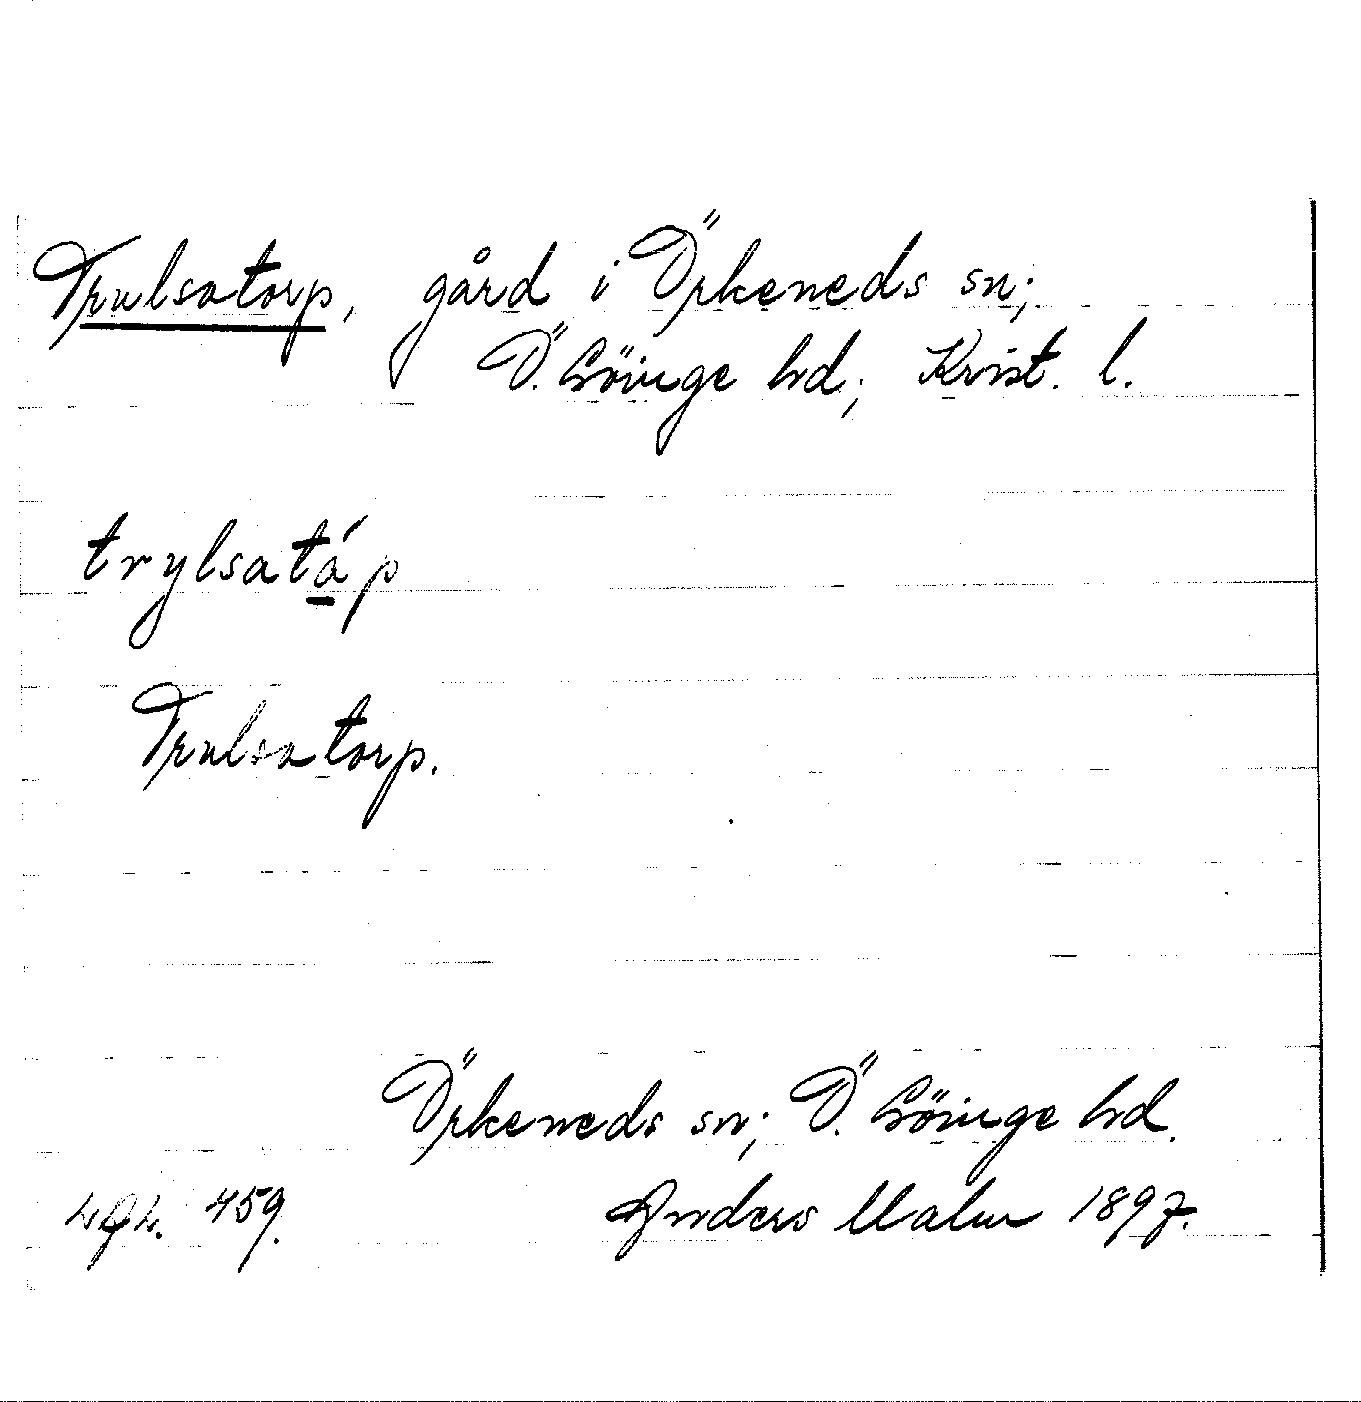 Trulsatorp, gård i Örkeneds sn;
Ö. Göinge hd; Krist. l.
trylsatáp
Trulsatorp.
Örkeneds sn; Ö. Göinge hd.
459. Anders Malm 1897.